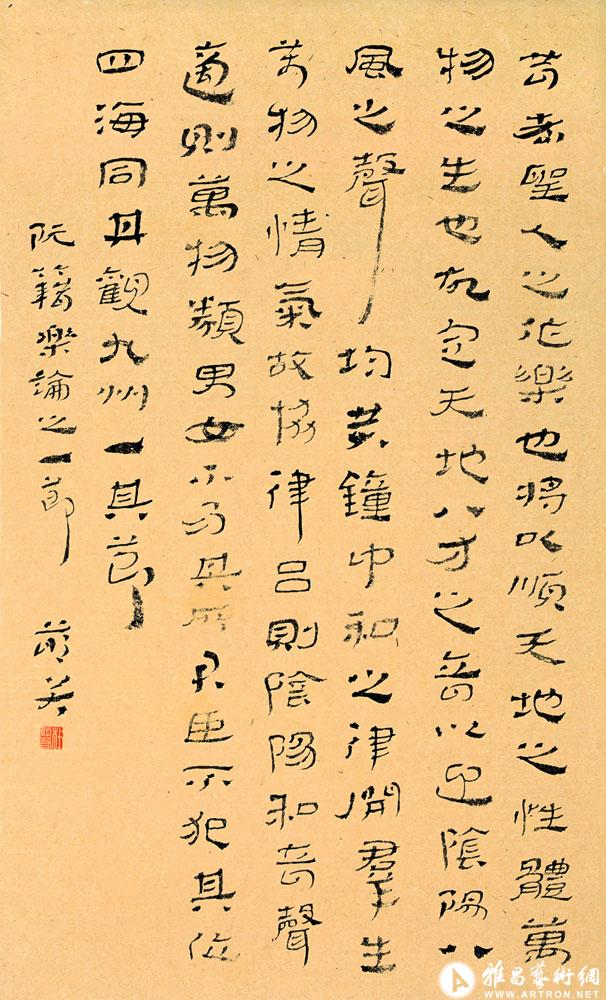 昔者聖人之作樂也將以順天地之性體萬
物之生也故定天地八方之音以迎陰陽八
風之聲均黃鐘中和之律開羣生
萬物之情氣故協律呂則陰陽和音聲
適則萬物類男女不易其所君臣不犯其位
四海同其觀九州一其節
阮籍樂論之一節
雅昌藝術網
WWW.ARTRON.NET